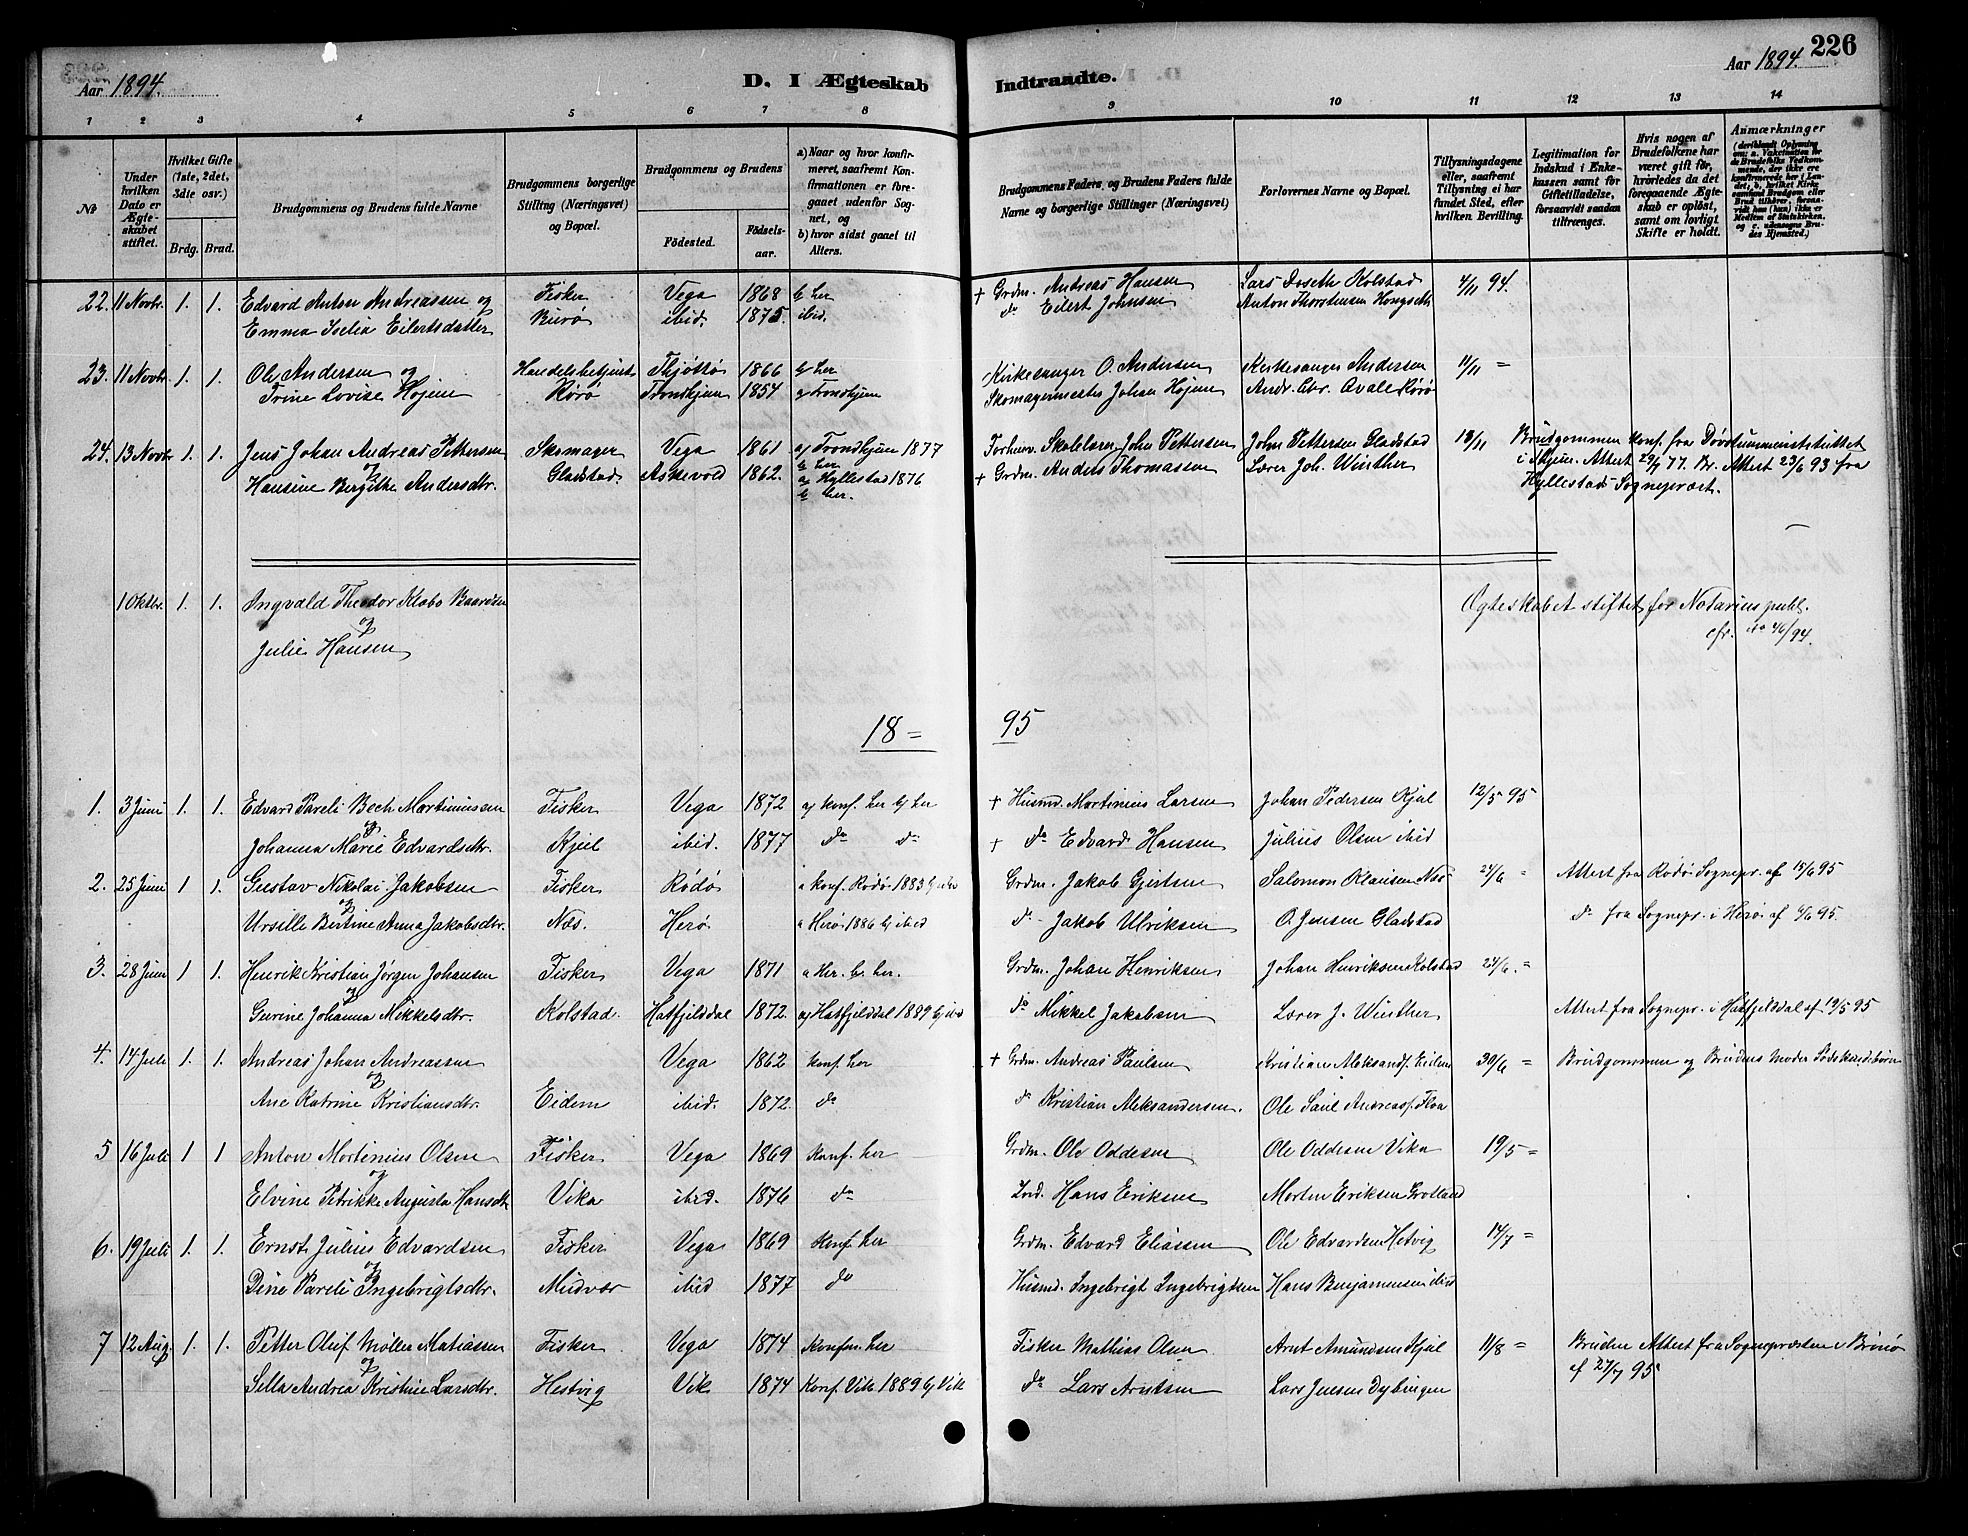 226
Aar 1894.
D. I Ægteskab Indtraadte.
Aar 1894.
1 2 3 4 5 6 7 8 9 10 11 12 13 14
№
Under hvilken Dato er Ægteskabet stiftet.
Hvilket Gifte (1ste, 2det, 3die osv.)
Brdg. Brud.
Brudgommens og Brudens fulde Navne
Brudgommens borgerlige Stilling (Næringsvei) og Bopæl.
Brudgommens og Brudens
Fødested.
Fødselsaar.
a) Naar og hvor konfirmeret, saafremt Konfirmationen er foregaaet udenfor Sognet, og
b) hvor sidst gaaet til Alters.
Brudgommens Faders, og Brudens Faders fulde Navne og borgerlige Stillinger (Næringsvei)
Forlovernes Navne og Bopæl.
Tillysningsdagene eller, saafremt Tillysning ei har fundet Sted, efter hvilken Bevilling.
Legitimation for Indskud i Enkekassen samt for Giftetilladelse, forsaavidt saadan tiltrænges.
Hvis nogen af Brudefolkene har været gift før, hvorledes da det foregaaende Ægteskab er opløst, samt om lovligt Skifte er holdt.
Anmærkninger
(deriblandt Oplysning om: a. Vaksination for de Brudefolks Vedkommende, der ikke ere konfirmerede her i Landet; b. hvilket Kirkesamfund Brudgom eller Brud tilhører, forsaavidt han (hun) ikke er Medlem af Statskirken, og c. udensogns Brudes Hjemsted.)
22. 11 Novbr. 1. 1. Edvard Anton Andreassen og Fisker Vega 1868 b her † Grdm. Andreas Hansen Lars Doseth Kolstad 4/11 94.
Emma Iselia Eilertsdatter Burø ibid. 1875. ibid. do Eilert Johnsen Anton Thorstensen Hongseth
23. 11 Novbr. 1. 1. Ole Andersen og Handelsbetjent Thjøttø 1866 b her Kirkesanger O. Andersen Kirkesanger Andersen 11/11 =
Trine Lovise Højem Rørø Trondhjem 1854 a Trondhjem Skomagermester Johan Højem Andr. Chr. Avale Rørø
24. 13 Novbr 1. 1. Jens Johan Andreas Pettersen Skomager Vega 1861 a Trondhjem 1877 Forhenv. Skolelærer John Pettersen John Pettersen Gladstad 18/11 Brudgommen konf. fra Døvstummeinstituttet
og b her i Thjem. Attest 29/7 77. Br. Attest 23/6 93 fra
Hansine Bergithe Andersdtr. Gladstad Askevold 1862. a Hyllestad 1876 † Grdm. Anders Thomassen Lærer Joh. Winther Hyllestads Sogneprest.
b her.
1 Oktbr. 1. 1. Ingvald Theodor Klæbo Baardsen Ægteskabet stiftet for Notarius publ.
og cfr. No 46/94.
Julie Hansen
18 = 95
1. 3 Juni 1. 1. Edvard Pareli Bech Martinussen Fisker Vega 1872 a konf. her b her † Husmd. Martinius Larsen Johan Pedersen Kjul 12/5 95
og
Johanna Marie Edvardsdtr. Kjul ibid. 1877 do do † do Edvard Hansen Julius Olsen ibid
2. 25 Juni 1 1. Gustav Nikolai Jakobsen Fisker Rødø a konf. Rødø 1883 b ibid Grdm. Jakob Gjertsen Salomon Klausen Næs 24/6 = Attest fra Rødø Sognepr. af 15/6 95
og
Ursille Bertine Anna Jakobsdtr. Næs. Herø a Herø 1886 b ibid do Jakob Ulriksen O. Jensen Gladstad do fra Sognepr. i Herø af 6/6 95.
3. 28 Juni 1 1. Henrik Kristian Jørgen Johansen Fisker Vega 1871 a Her. b. her. Grdm. Johan Henriksen Johan Henriksen Kolstad 24/6. =
og
Gurine Johanna Mikkelsdtr. Kolstad. Hatfjelddal 1872. a Hatfjelddal 1889 b ibid do Mikkel Jakobsen Lærer J. Winther Attest fra Sognepr. i Hatfjelddal af 19/5 95
4. 14 Juli 1. 1. Andreas Johan Andreassen Vega 1862 konf. her † Grdm. Andreas Paulsen Kristian Aleksands. Eidem 30/6 = Brudgommen og Brudens Moder Sødskendebørn
og
Ane Katrine Kristiansdtr. Eidem ibid. 1872. do do Kristian Aleksandersen. Ole Saul Andreass. Floa
5 16 Juli 1 1 Anton Martinius Olsen Fisker Vega 1869 Konf. her Grdm. Ole Oddesen Ole Oddesen Vika 19/5 =
og
Elvine Petrikke Augusta Hansdtr Vika ibid. 1876 do Ind. Hans Eriksen Morten Eriksen Grotland
6. 19 Juli 1. 1. Ernst Julius Edvardsen Fisker Vega 1869 Konf. her Grdm. Edvard Eliassen Ole Edvardsen Hetvig 14/7 =
og
Dine Pareli Ingebrigtsdtr. Mudvær ibid 1877 do Husmd. Ingebrigt Ingebrigtsen Hans Benjaminsen ibid
7 12 Aug. 1. 1. Petter Oluf Møller Matiassen Fisker Vega 1874 Konfm. her Fisker Mathias Olsen Arnt Amundsen Kjul 11/8 = Bruden Attest fra Sognepræsten i Brønø
og af 27/7 95
Sella Andrea Kristine Larsdtr. Hestvig Vik 1874 Konf. Vik 1889 b Vik do Lars Arntsen Lars Jensen Dybingen